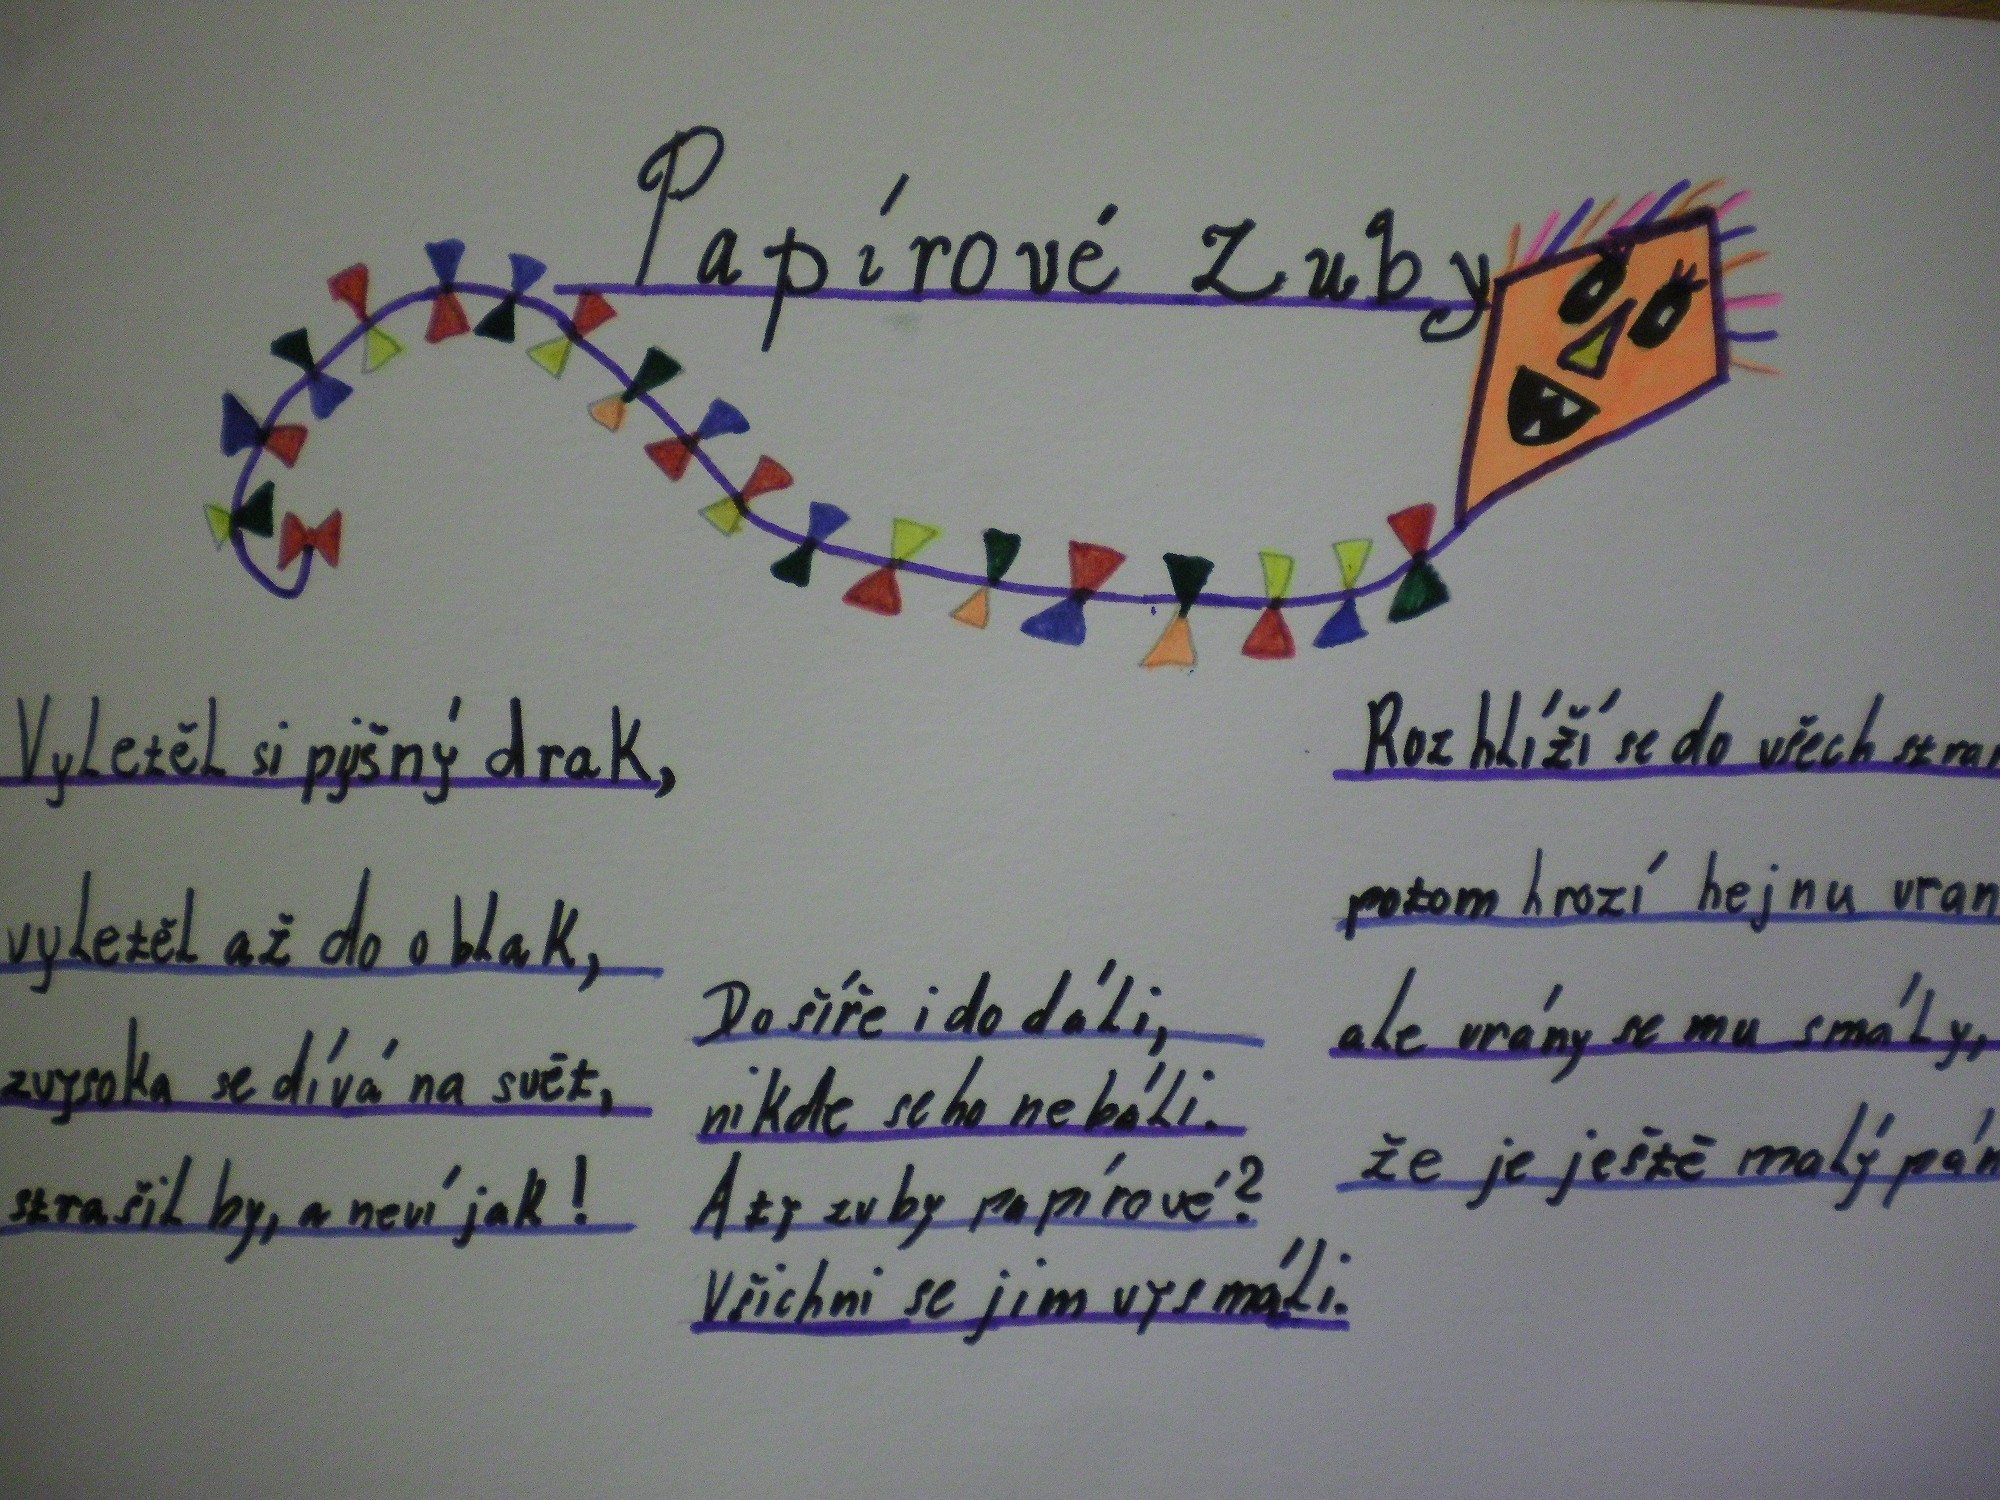 Papírové zuby
Vyletěl si pyšný drak,
vyletěl až do oblak,
zvysoka se dívá na svět,
strašil by, a neví jak!
Do šíře i do dáli,
nikde se ho nebáli.
A ty zuby papírové?
Všichni se jim vysmáli.
Rozhlíží se do všech stran
potom hrozí hejnu vran
ale vrány se mu smály,
že je ještě malý pán